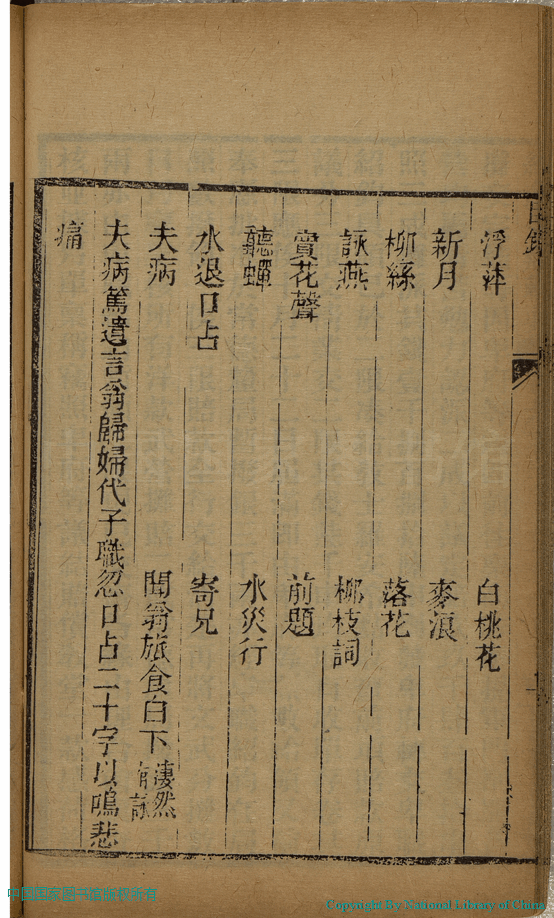 目錄
浮萍　白桃花
新月　麥浪
柳絲　落花
詠燕　柳枝詞
賣花聲　前題
聽蟬　水災行
水退口占　寄兄
夫病　聞翁旅食白下淒然有詠
夫病篤遺言翁歸婦代子職忽口占二十字以鳴悲
痛
中国国家图书馆
中国国家图书馆版权所有
Copyright By National Library of China